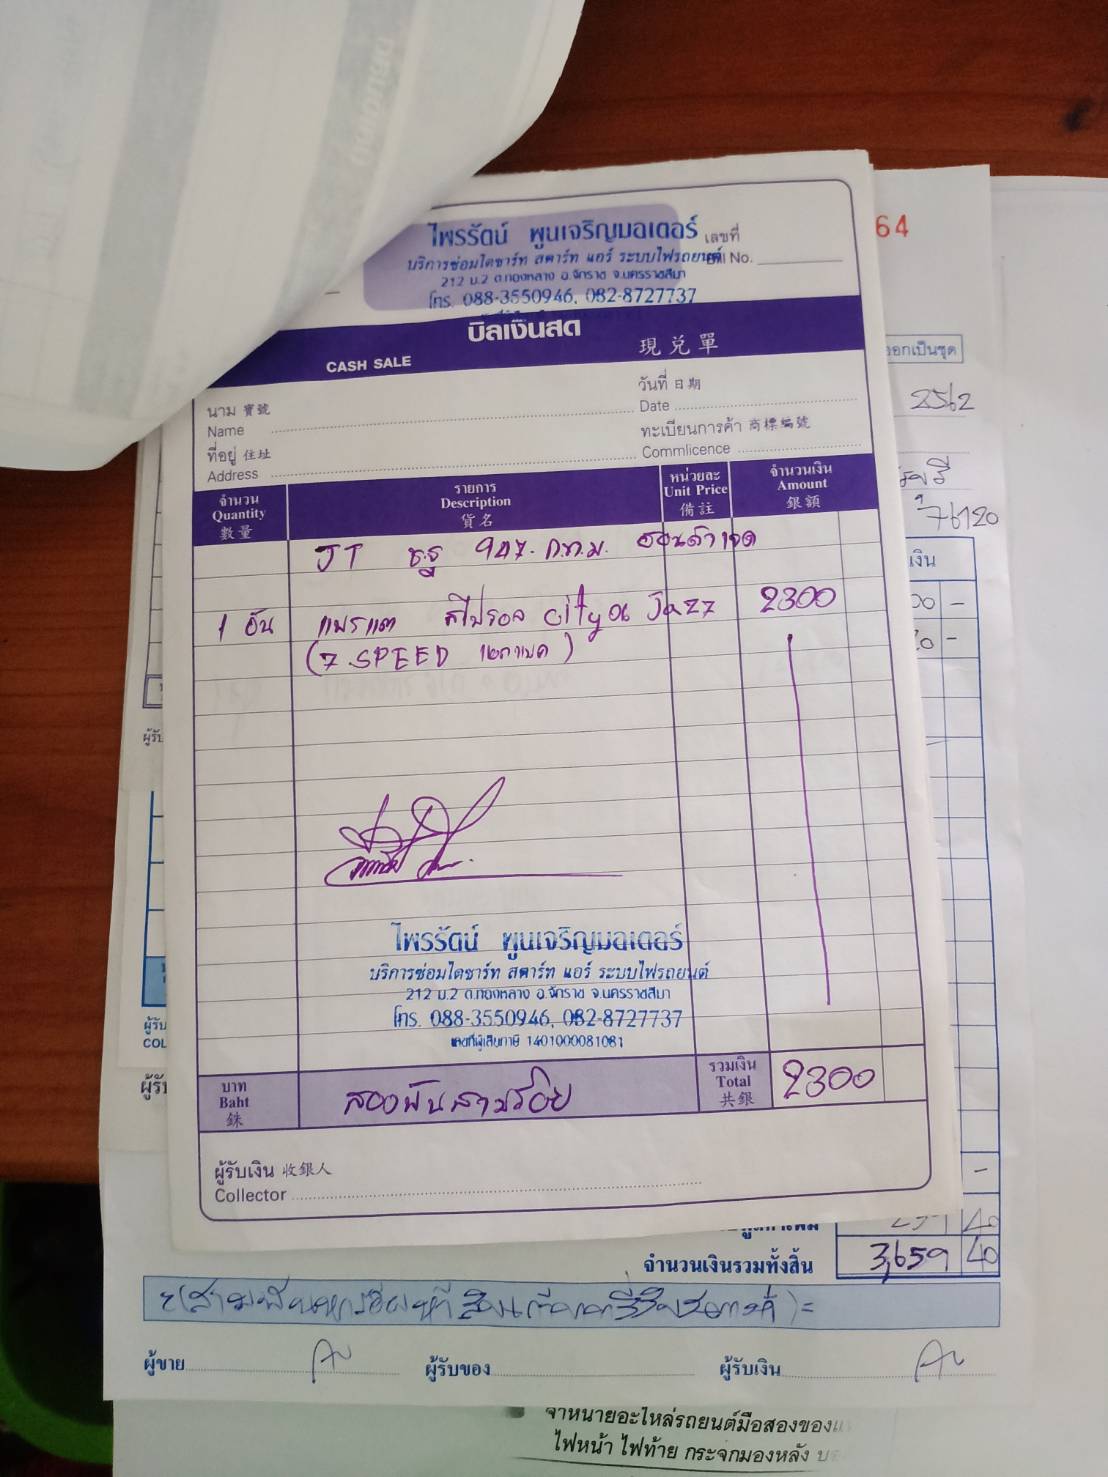 ไพรรัตน์ พูนเจริญมอเตอร์
บริการซ่อมไดชาร์ท สตาร์ท แอร์ ระบบไฟรถยนต์
212 ม.2 ต.ทองหลาง อ.จักราช จ.นครราชสีมา
โทร. 088-3550946, 082-8727737
เลขที่
Bill No.
บิลเงินสด
CASH SALE
現兌單
นาม 寶號
Name
วันที่ 日期
Date
ที่อยู่ 住址
Address
ทะเบียนการค้า 商標編號
Commlicence
จำนวน
Quantity
數量
รายการ
Description
貨名
หน่วยละ
Unit Price
備註
จำนวนเงิน
Amount
銀額
JT ชฐ 947 ก.ท.ม. ฮอนด้าแจ๊ด
1 อัน แพรแต สไปรอล city 06 Jazz 2300
(7 SPEED
ไพรรัตน์ พูนเจริญมอเตอร์
บริการซ่อมไดชาร์ท สตาร์ท แอร์ ระบบไฟรถยนต์
212 ม.2 ต.ทองหลาง อ.จักราช จ.นครราชสีมา
โทร. 088-3550946, 082-8727737
เลขที่ผู้เสียภาษี 1401000081081
บาท
Baht
銖
สองพันสามร้อย
รวมเงิน
Total
共銀
2300
ผู้รับเงิน 收銀人
Collector
64
ออกเป็นชุด
2562
76120
เงิน
จำนวนเงินรวมทั้งสิ้น 3,659 40
ผู้ขาย
ผู้รับของ
ผู้รับเงิน
จำหน่ายอะไหล่รถยนต์มือสองของ
ไฟหน้า ไฟท้าย กระจกมองหลัง